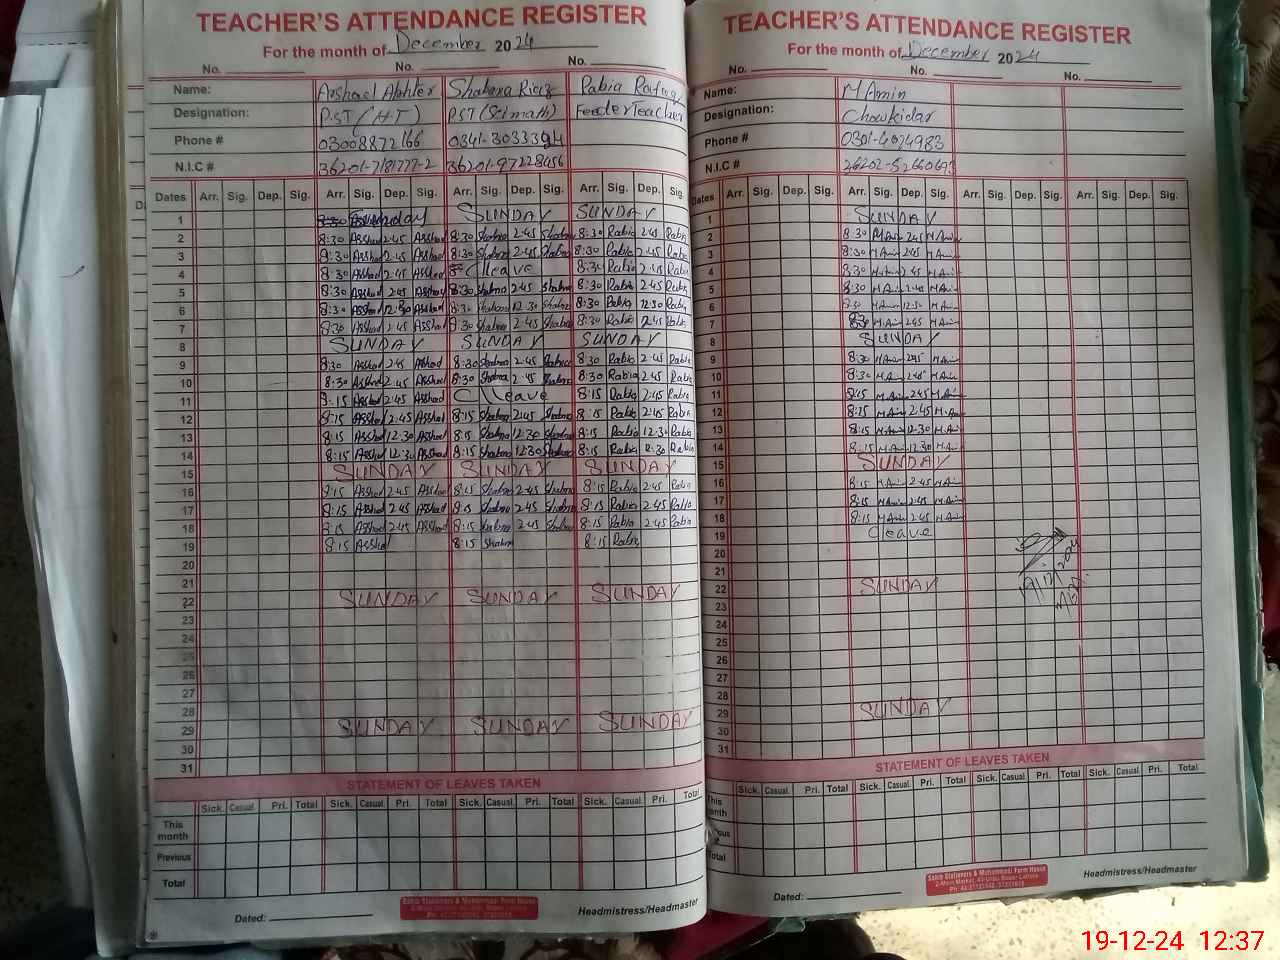 TEACHER'S ATTENDANCE REGISTER
For the month of December 2024
No. No. No.
Name: Arshad Akhter Shabana Riaz Rabia Rafiq
Designation: P.S.T (H.T) PST (Sci math) Feeder Teacher
Phone # 03008872166 0341-3033394
N.I.C # 36201-7181777-2 36201-97228456
Dates Arr. Sig. Dep. Sig. Arr. Sig. Dep. Sig. Arr. Sig. Dep. Sig. Arr. Sig. Dep. Sig.
1 Sunday SUNDAY SUNDAY
2 8:30 Asshad 2:45 Asshad 8:30 Shabna 2:45 Shabna 8:30 Rabia 2:45 Rabia
3 8:30 Asshad 2:45 Asshad 8:30 Shabna 2:45 Shabna 8:30 Rabia 2:45 Rabia
4 8:30 Asshad 2:45 Asshad C leave 8:30 Rabia 2:45 Rabia
5 8:30 Asshad 2:45 Asshad 8:30 Shabna 2:45 Shabna 8:30 Rabia 2:45 Rabia
6 8:30 Asshad 12:30 Asshad 8:30 Shabana 12:30 Shabna 8:30 Rabia 12:30 Rabia
7 8:30 Asshad 2:45 Asshad 8:30 Shabna 2:45 Shabna 8:30 Rabia 2:45 Rabia
8 SUNDAY SUNDAY SUNDAY
9 8:30 Asshad 2:45 Asshad 8:30 Shabna 2:45 Shabna 8:30 Rabia 2:45 Rabia
10 8:30 Asshad 2:45 Asshad 8:30 Shabna 2:45 Shabna 8:30 Rabia 2:45 Rabia
11 8:15 Asshad 2:45 Asshad C leave 8:15 Rabia 2:45 Rabia
12 8:15 Asshad 2:45 Asshad 8:15 Shabna 2:45 Shabna 8:15 Rabia 2:45 Rabia
13 8:15 Asshad 12:30 Asshad 8:15 Shabna 12:30 Shabna 8:15 Rabia 12:30 Rabia
14 8:15 Asshad 12:30 Asshad 8:15 Shabna 12:30 Shabna 8:15 Rabia 12:30 Rabia
15 SUNDAY SUNDAY SUNDAY
16 8:15 Asshad 2:45 Asshad 8:15 Shabna 2:45 Shabna 8:15 Rabia 2:45 Rabia
17 8:15 Asshad 2:45 Asshad 8:15 Shabna 2:45 Shabna 8:15 Rabia 2:45 Rabia
18 8:15 Asshad 2:45 Asshad 8:15 Shabna 2:45 Shabna 8:15 Rabia 2:45 Rabia
19 8:15 Asshad 8:15 Shabna 8:15 Rabia
20
21
22 SUNDAY SUNDAY SUNDAY
23
24
25
26
27
28
29 SUNDAY SUNDAY SUNDAY
30
31
STATEMENT OF LEAVES TAKEN
Sick. Casual. Pri. Total Sick. Casual. Pri. Total Sick. Casual. Pri. Total Sick. Casual. Pri. Total
This month
Previous
Total
Dated:
Sakib Stationers & Muhammadi Form House
2-Main Market, 43-Urdu Bazar Lahore
Headmistress/Headmaster
TEACHER'S ATTENDANCE REGISTER
For the month of December 2024
No. No. No.
Name: M Amin
Designation: Chowkidar
Phone # 0301-4074983
N.I.C #
Dates Arr. Sig. Dep. Sig. Arr. Sig. Dep. Sig. Arr. Sig. Dep. Sig. Arr. Sig. Dep. Sig.
1 SUNDAY
2 8:30 M Amin 2:45 M Amin
3 8:30 M Amin 2:45 M Amin
4 8:30 M Amin 2:45 M Amin
5 8:30 M Amin 2:45 M Amin
6 8:30 M Amin 12:30 M Amin
7 8:30 M Amin 2:45 M Amin
8 SUNDAY
9 8:30 M Amin 2:45 M Amin
10 8:30 M Amin 2:45 M Amin
11 8:15 M Amin 2:45 M Amin
12 8:15 M Amin 2:45 M Amin
13 8:15 M Amin 12:30 M Amin
14 8:15 M Amin 12:30 M Amin
15 SUNDAY
16 8:15 M Amin 2:45 M Amin
17 8:15 M Amin 2:45 M Amin
18 8:15 M Amin 2:45 M Amin
19 C leave
20
21
22 SUNDAY
23
24
25
26
27
28
29 SUNDAY
30
31
19/12/2024
STATEMENT OF LEAVES TAKEN
Sick. Casual. Pri. Total Sick. Casual. Pri. Total Sick. Casual. Pri. Total Sick. Casual. Pri. Total
This month
Total
Dated:
Sakib Stationers & Muhammadi Form House
2-Main Market, 43-Urdu Bazar Lahore
Headmistress/Headmaster
19-12-24 12:37